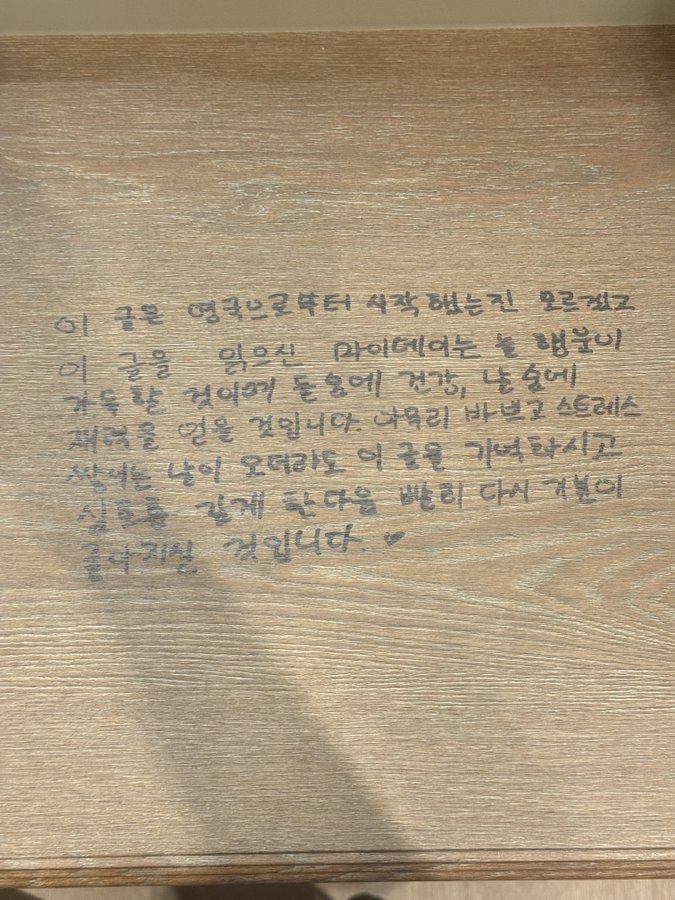 이 글은 영국으로부터 시작했는진 모르겠고
이 글을 읽으신 마이데이는 늘 행운이
가득할 것이며 들숨에 건강, 날숨에
재력을 얻을 것입니다. 아무리 바쁘고 스트레스
쌓이는 날이 오더라도 이 글을 기억하시고
심호흡 깊게 한다음 빨리 다시 기분이
좋아지실 것입니다. ♥